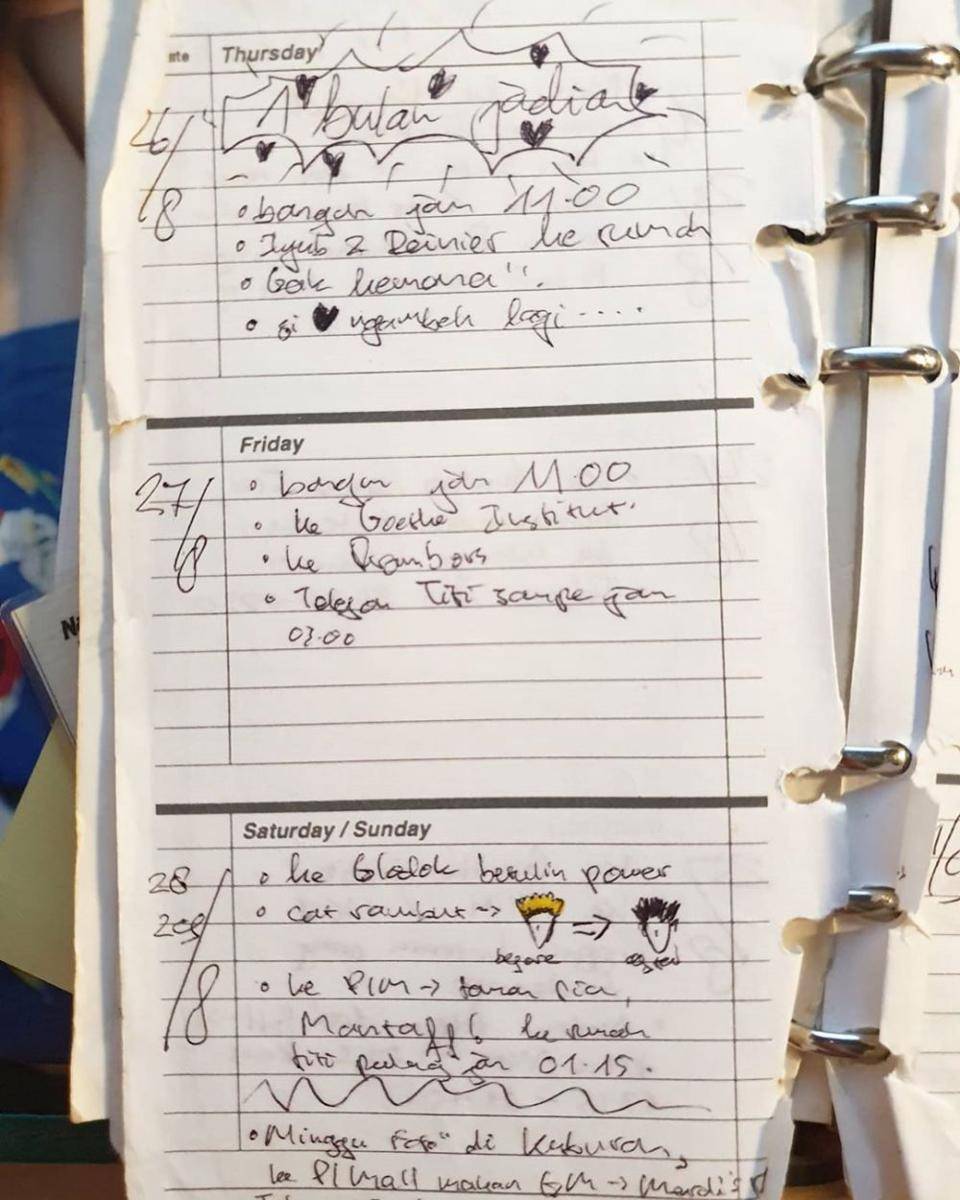 Thursday
1 bulan jadian
26/8
• bangun jam 11.00
• Iyub 2 Reinier ke rumah
• Gak kemana".
• si ♥ ngambek lagi ....
Friday
27/8
• bangun jam 11.00
• ke Goethe Institut.
• ke Prambors
• Telefon Titi sampe jam
03.00
Saturday / Sunday
28
29/8
• ke Glodok beneulin power
• cat rambut ->
before
after
• ke PIM -> taman ria,
Mantaff! ke rumah
titi pulang jam 01.15.
• Minggu foto" di kuburan,
ke PI Mall makan GM ->